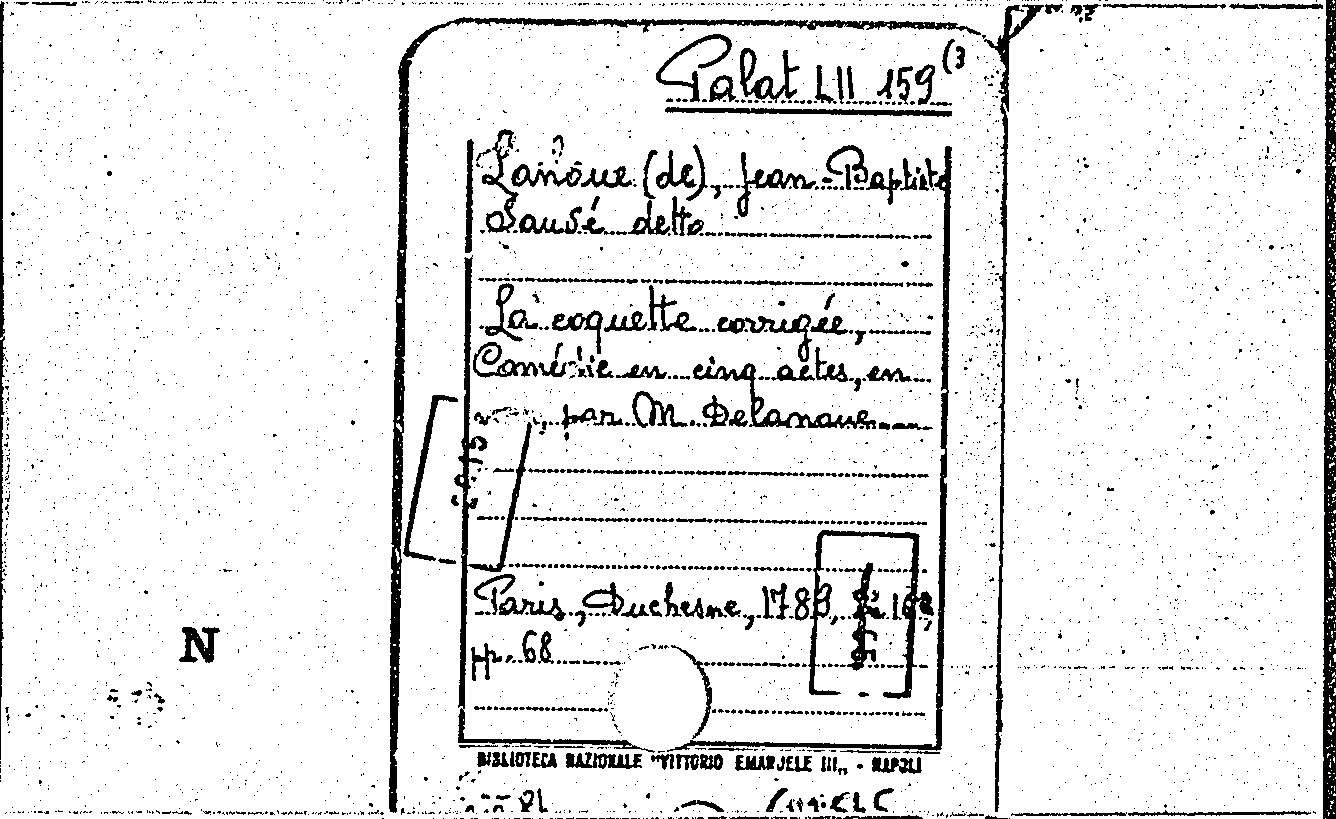 Palat LII 159(3
Lanoue (de), Jean-Baptiste
Sauvé detto
La coquette corrigée,
Comédie en cinq actes, en
par M. Delanoue
Paris, Duchesne, 178
pp. 68
N
BIBLIOTECA NAZIONALE "VITTORIO EMANUELE III" - NAPOLI